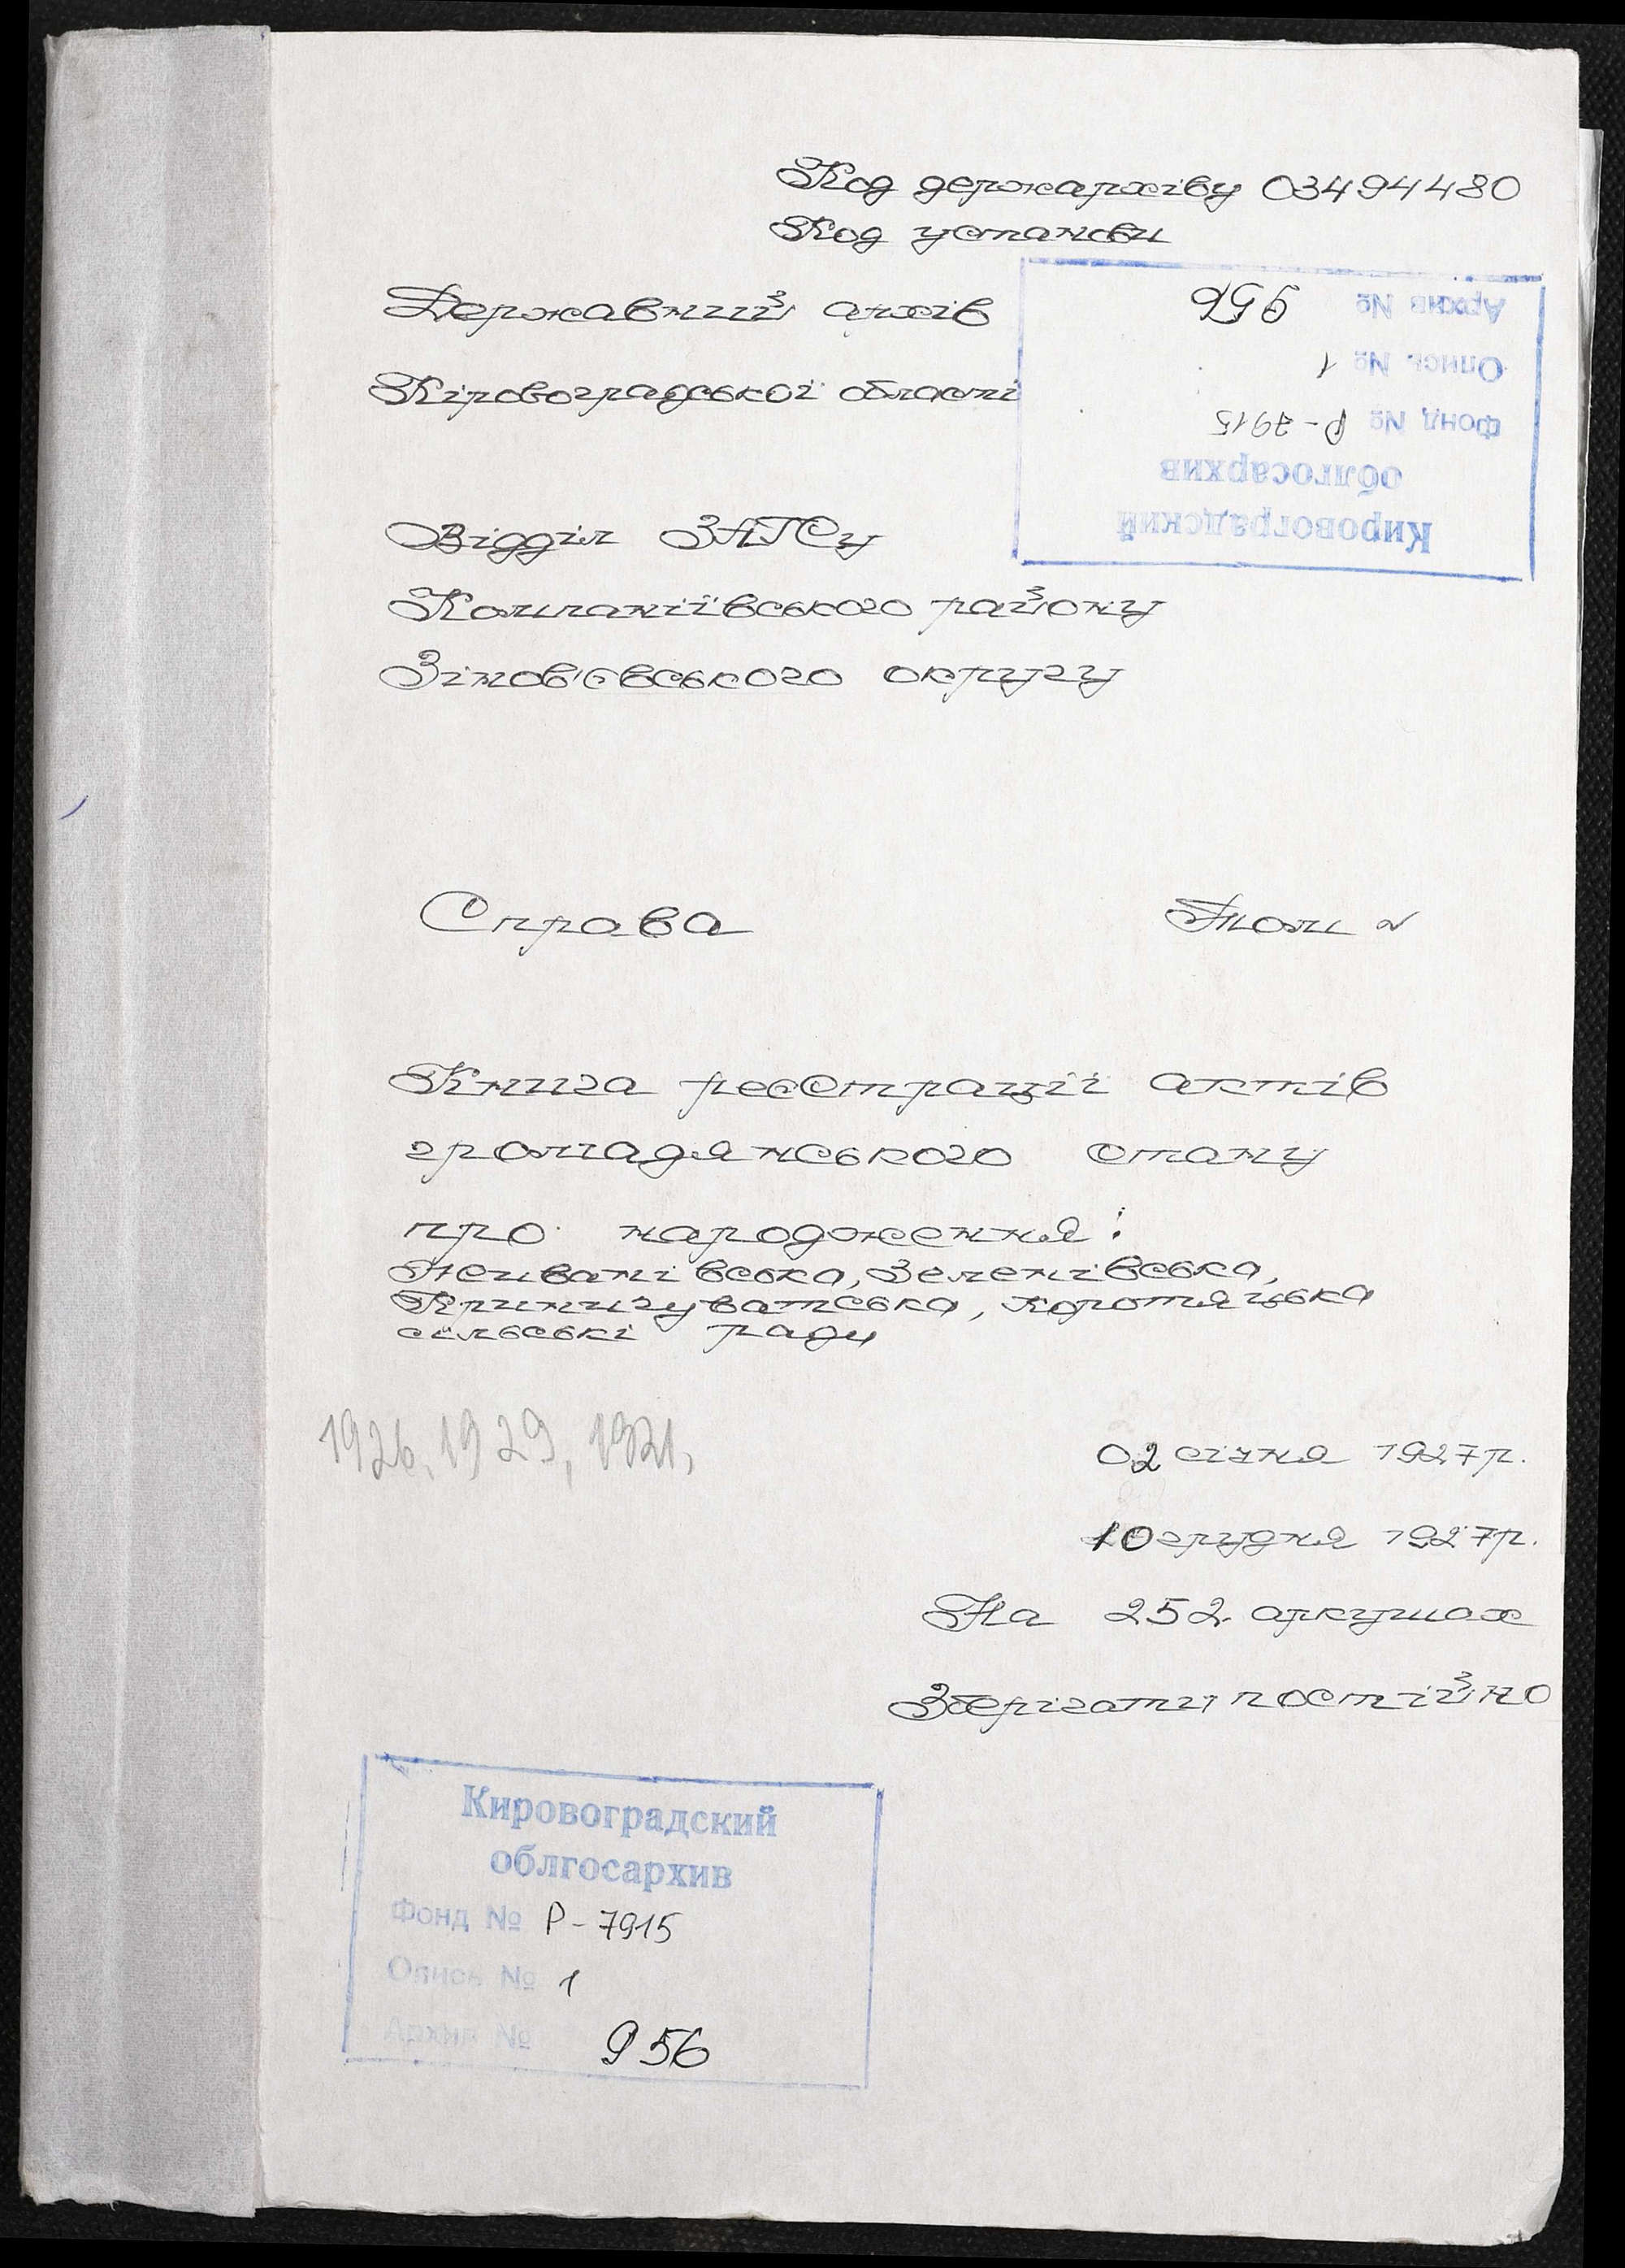 Код держархіву 03494480
Код установи
Державний архів
Кіровоградської області
Кировоградский
облгосархив
Фонд № Р-7915
Опись № 1
Архив № 956
Відділ ЗАГСу
Компаніївського району
Зінов'євського округу
Справа Том
Книга реєстрації актів
громадянського стану
про народження:
Зеленівська,
Криничуватська, Коротяцька
сільські ради
1926, 1929, 1921,
02 січня 1927р.
10 грудня 1927р.
На 252 аркушах
Зберігати постійно
Кировоградский
облгосархив
Фонд № Р-7915
Опись № 1
Архив № 956